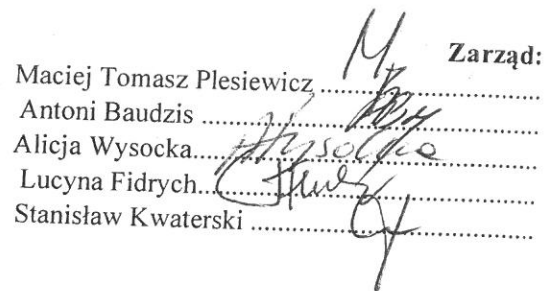 Zarząd:
Maciej Tomasz Plesiewicz ........................
Antoni Baudzis ........................
Alicja Wysocka........................ Wysocka
Lucyna Fidrych........................
Stanisław Kwaterski ........................